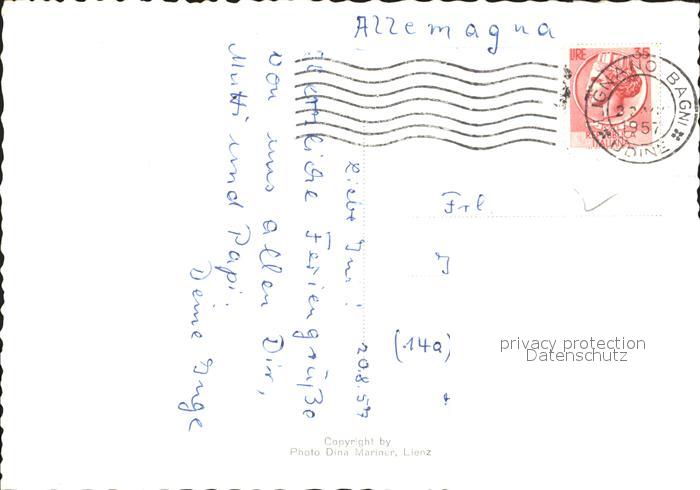 Allemagna
LIRE 35
REPUBBLICA ITALIANA
LIGNANO BAGNI
1957
UDINE
Frl.
J
(14a)
privacy protection
Datenschutz
20.8.57
Liebe Gusi!
Herzliche Feriengrüße
von uns allen Dir,
Mutti und Papi.
Deine Inge
Copyright by
Photo Dina Mariner, Lienz